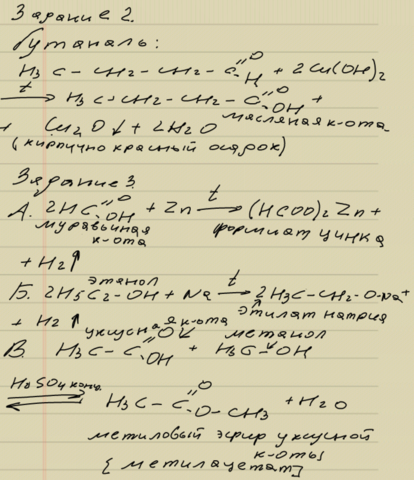 Задание 2.
Бутаналь:
H3C-CH2-CH2-C(=O)H + 2Cu(OH)2
t→ H3C-CH2-CH2-C(=O)OH +
масляная к-ота
+ Cu2O↓ + 2H2O
(кирпично красный осадок)
Задание 3.
А. 2HC(=O)OH + Zn t→ (HCOO)2Zn +
муравьиная к-ота формиат цинка
+ H2↑
этанол
Б. 2H5C2-OH + Na t→ 2H3C-CH2-O-Na+
+ H2↑ этилат натрия
уксусная к-ота метанол
В. H3C-C(=O)OH + H3C-OH
H2SO4 конц ⇌ H3C-C(=O)O-CH3 + H2O
метиловый эфир уксусной
к-оты
[метилацетат]